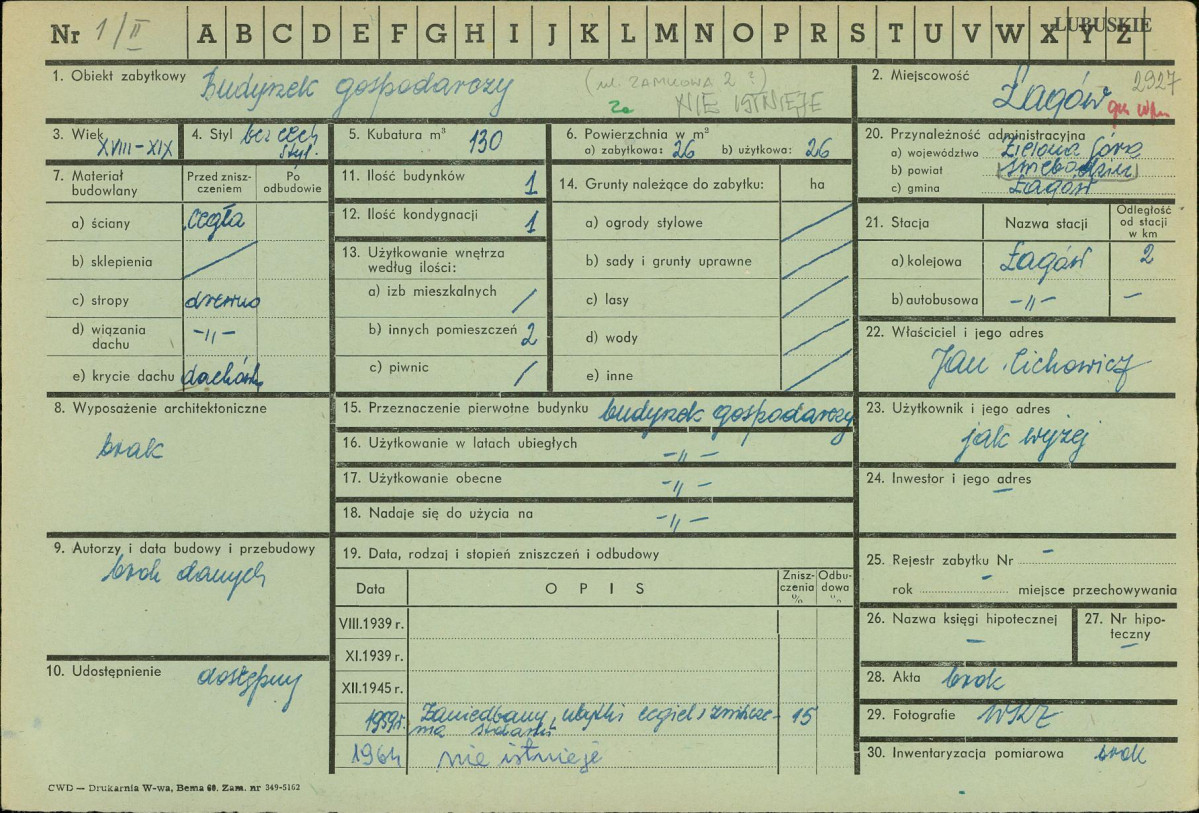 Nr 1/II A B C D E F G H I J K L M N O P R S T U V W X Y Z LUBUSKIE
1. Obiekt zabytkowy Budynek gospodarczy (ul. ZAMKOWA 2 ?)
NIE ISTNIEJE
2. Miejscowość 2927
Łagów
3. Wiek XVIII-XIX
4. Styl bez cech styl.
5. Kubatura m³ 130
6. Powierzchnia w m²
a) zabytkowa: 26 b) użytkowa: 26
20. Przynależność administracyjna
a) województwo Zielona Góra
b) powiat Świebodzin
c) gmina Łagów
7. Materiał budowlany
Przed zniszczeniem
Po odbudowie
a) ściany cegła
b) sklepienia
c) stropy drewno
d) wiązania dachu -"-
e) krycie dachu dachówka
11. Ilość budynków 1
12. Ilość kondygnacji 1
13. Użytkowanie wnętrza
według ilości:
a) izb mieszkalnych /
b) innych pomieszczeń 2
c) piwnic /
14. Grunty należące do zabytku: ha
a) ogrody stylowe
b) sady i grunty uprawne
c) lasy
d) wody
e) inne
21. Stacja Nazwa stacji Odległość od stacji w km
a) kolejowa Łagów 2
b) autobusowa -"- —
22. Właściciel i jego adres
Jan Cichowicz
8. Wyposażenie architektoniczne
brak
15. Przeznaczenie pierwotne budynku budynek gospodarczy
16. Użytkowanie w latach ubiegłych -"-
17. Użytkowanie obecne -"-
18. Nadaje się do użycia na -"-
23. Użytkownik i jego adres
jak wyżej
24. Inwestor i jego adres
—
9. Autorzy i data budowy i przebudowy
brak danych
10. Udostępnienie dostępny
19. Data, rodzaj i stopień zniszczeń i odbudowy
Data OPIS Zniszczenia % Odbudowa %
VIII.1939 r.
XI.1939 r.
XII.1945 r.
1959r. Zaniedbany, ubytki cegieł i zniszcze- 15
nia stolarki
1964 nie istnieje
25. Rejestr zabytku Nr —
rok — miejsce przechowywania
26. Nazwa księgi hipotecznej
—
27. Nr hipoteczny
—
28. Akta brak
29. Fotografie WKZ
30. Inwentaryzacja pomiarowa brak
CWD — Drukarnia W-wa, Bema 60. Zam. nr 349-5162